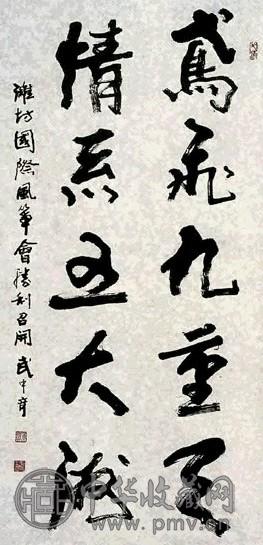 鳶飛九重天
情系五大洲
濰坊國際風箏會勝利召開 武中奇
中华收藏网
www.pmv.cn